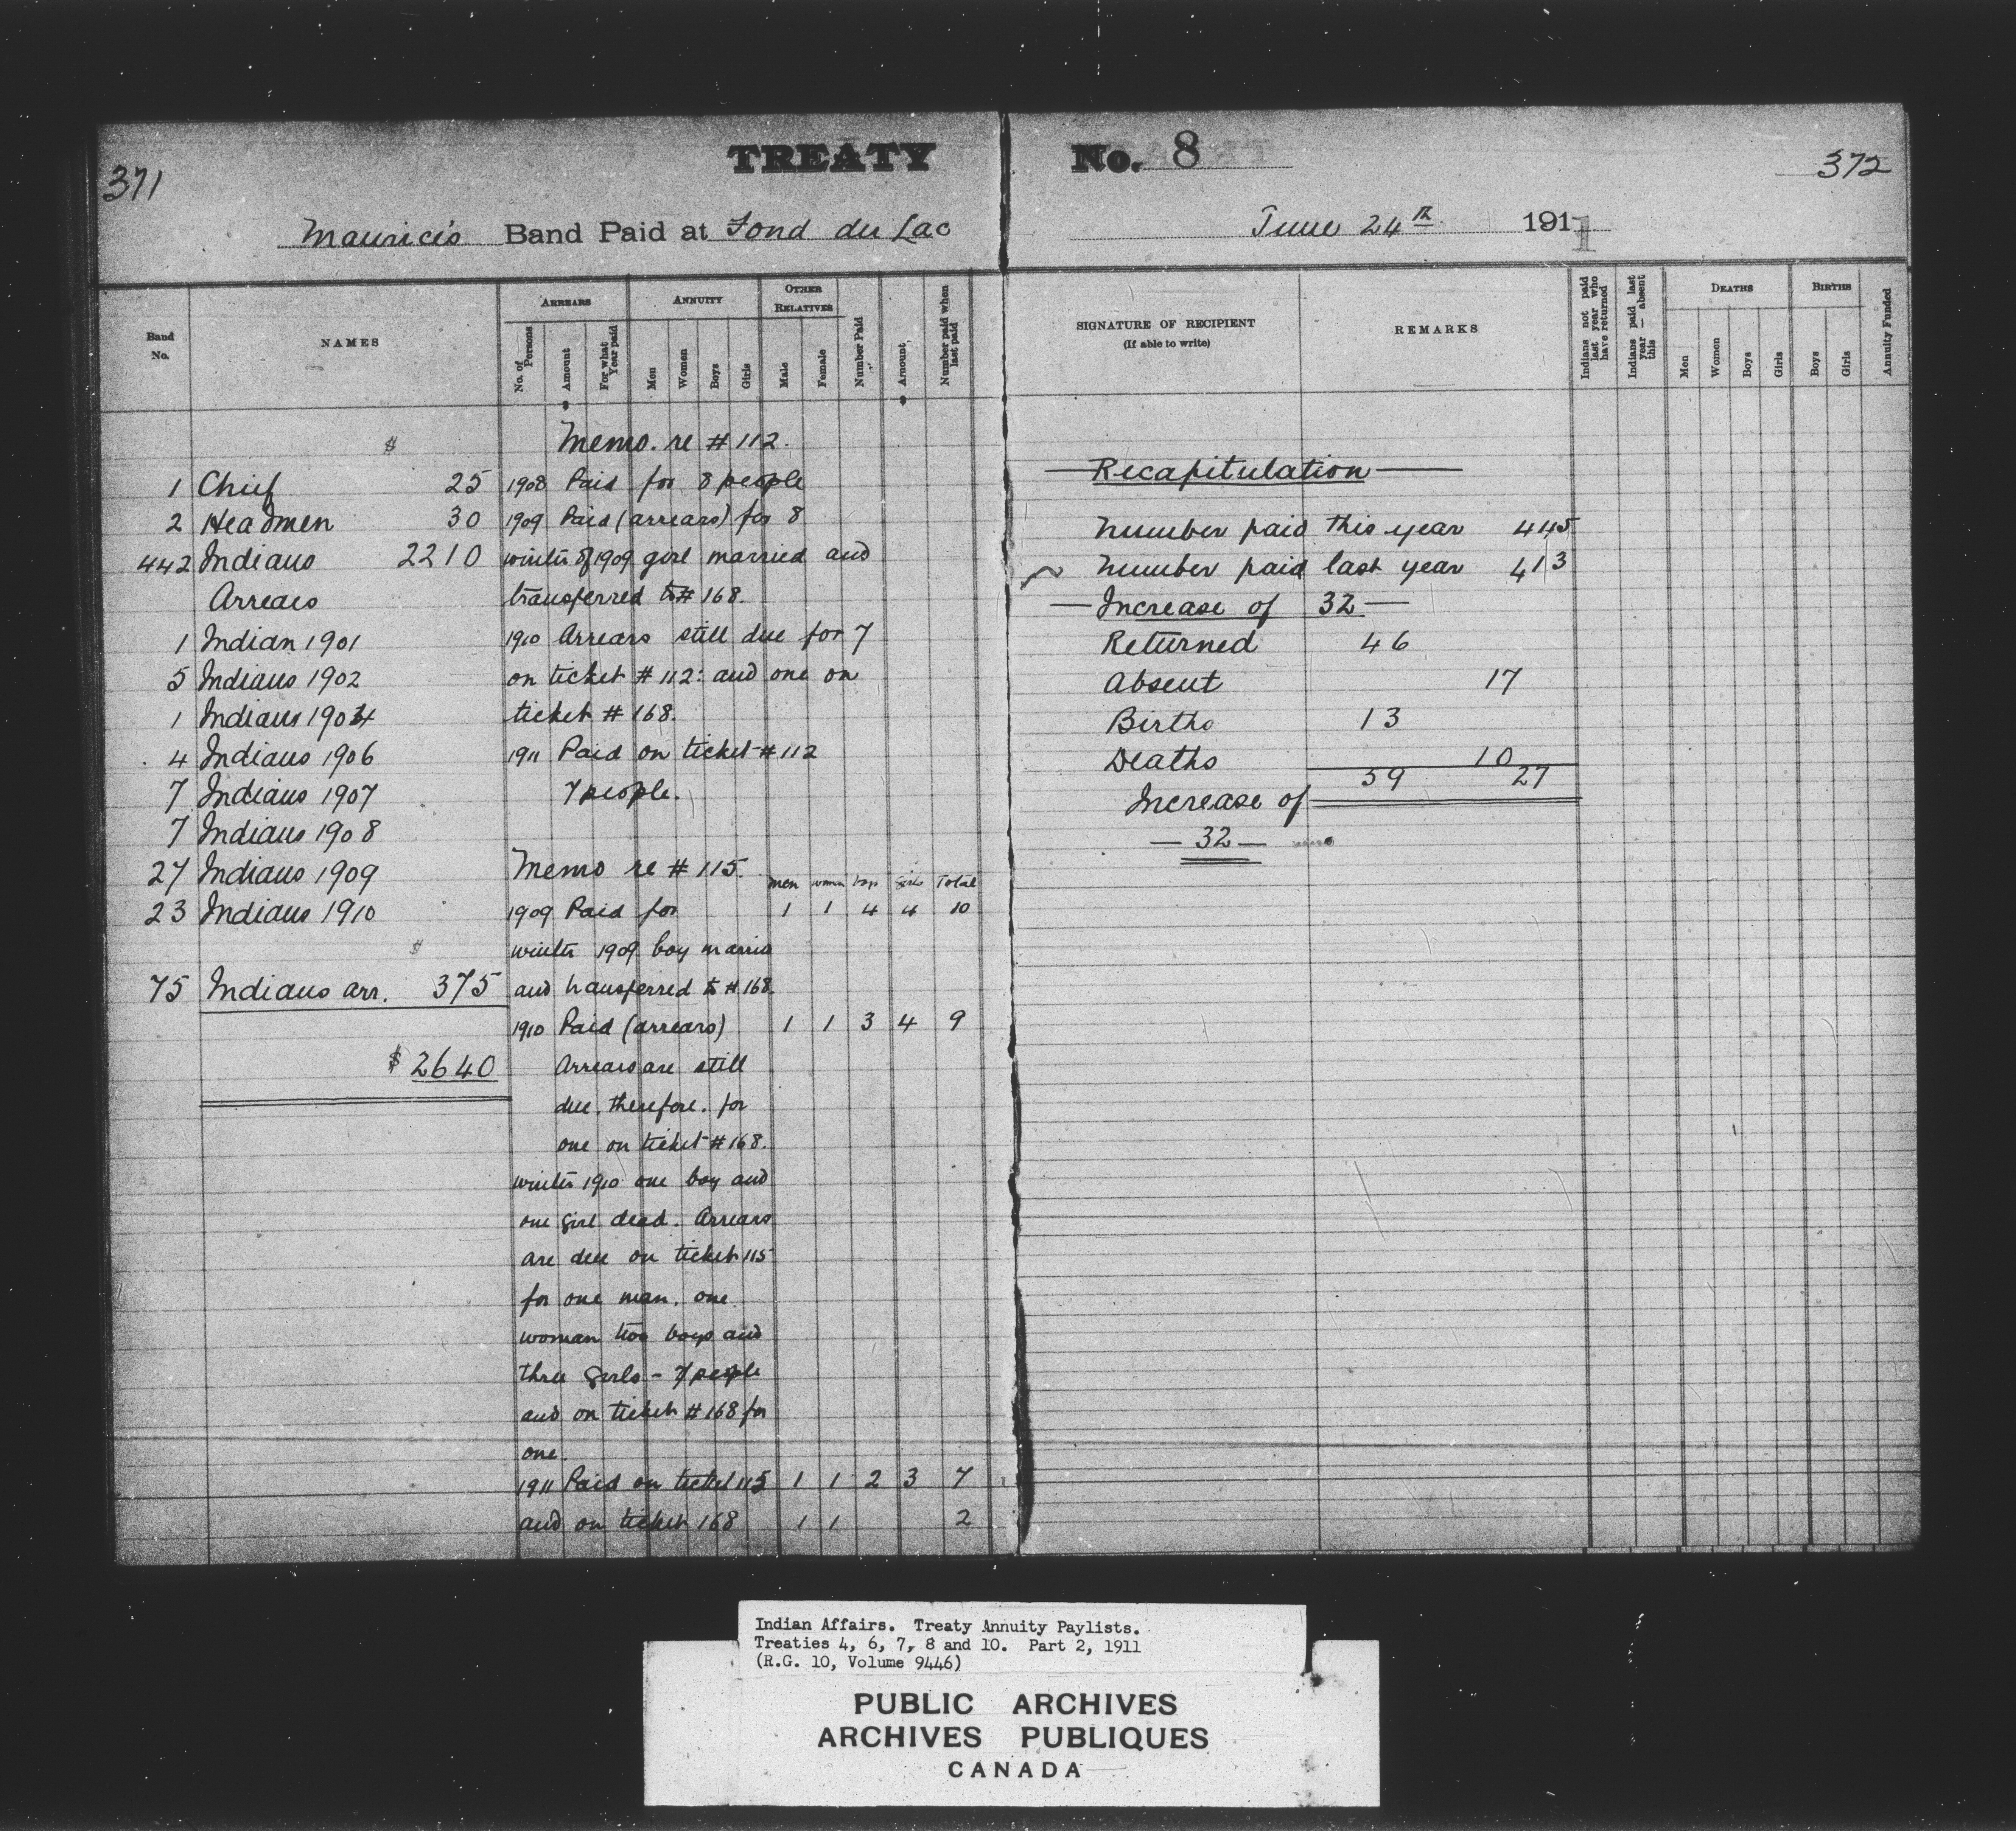 TREATY No. 8
371
372
Maurice's Band Paid at Fond du Lac
June 24th 1911
Band No.
NAMES
ARREARS
No. of Persons
Amount
For what Year paid
ANNUITY
Men
Women
Boys
Girls
OTHER RELATIVES
Male
Female
Number Paid
Amount
Number paid when last paid
SIGNATURE OF RECIPIENT
(If able to write)
REMARKS
Indians not paid last year who have returned
Indians paid last year — absent this
DEATHS
Men
Women
Boys
Girls
BIRTHS
Boys
Girls
Annuity Funded
$
1 Chief 25
2 Headmen 30
442 Indians 2210
Arrears
1 Indian 1901
5 Indians 1902
1 Indians 1904
4 Indians 1906
7 Indians 1907
7 Indians 1908
27 Indians 1909
23 Indians 1910
$
75 Indians arr. 375
$ 2640
Memo. re # 112.
1908 Paid for 8 people
1909 Paid (arrears) for 8
winter of 1909 girl married and
transferred to # 168.
1910 Arrears still due for 7
on ticket # 112: and one on
ticket # 168.
1911 Paid on ticket # 112
7 people.
Memo re # 115.
men women boys girls Total
1909 Paid for 1 1 4 4 10
winter 1909 boy married
and transferred to # 168.
1910 Paid (arrears) 1 1 3 4 9
Arrears are still
due, therefore, for
one on ticket # 168.
winter 1910 one boy and
one girl dead. Arrears
are due on ticket 115
for one man, one
woman two boys and
three girls - 7 people
and on ticket # 168 for
one.
1911 Paid on ticket 115 1 1 2 3 7
and on ticket 168 1 1 2
Recapitulation
Number paid this year 445
Number paid last year 413
— Increase of 32 —
Returned 46
Absent 17
Births 13
Deaths 10
59 27
Increase of
— 32 —
Indian Affairs. Treaty Annuity Paylists.
Treaties 4, 6, 7, 8 and 10. Part 2, 1911
(R.G. 10, Volume 9446)
PUBLIC ARCHIVES
ARCHIVES PUBLIQUES
CANADA